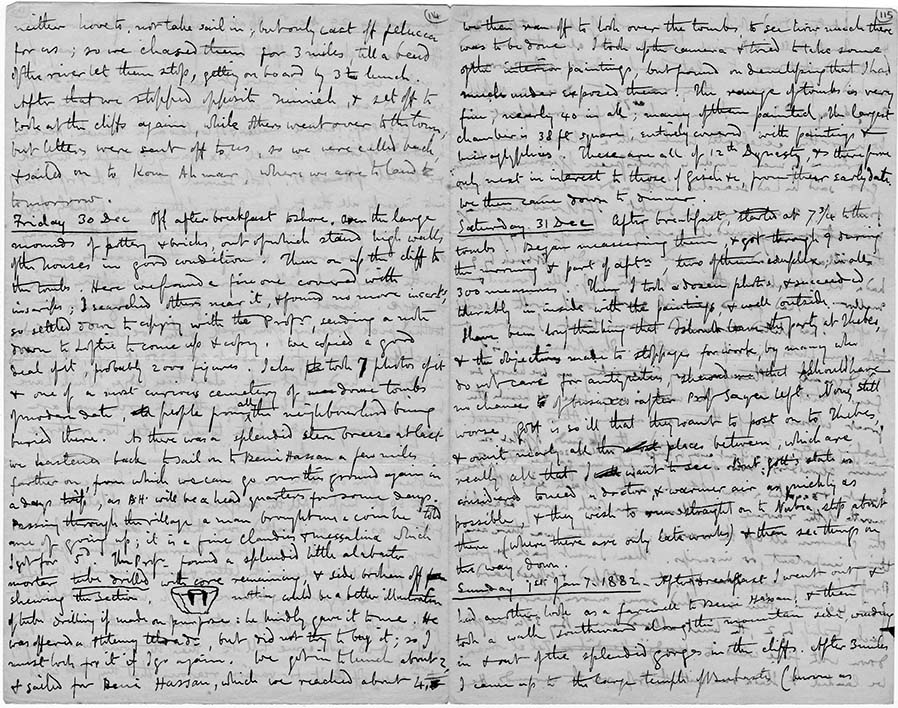 114
neither have to, nor take sail in; but only cast off felucca
for us; so we chased them for 3 miles till a bend
of the river let them stop, getting on board by 3 to lunch.
After that we stopped opposite Minieh, & set off to
look at the cliffs again, while others went over to the town,
but letters were sent off to us, so we were called back,
& sailed on to Kom Ahmar, where we are to land
tomorrow.
Friday 30 Dec Off after breakfast to shore, over the large
mounds of pottery & bricks, out of which stand high walls
of the houses in good condition. Then on up the cliff to
the tombs. Here we found a fine one covered with
inscrips; I searched others near it, & found no more inscrip,
so settled down to copying with the Profr, sending a note
down to Loftie to come up & copy. We copied a good
deal of it, probably 2000 figures. I also took 7 photos of it
& one of a most curious cemetery of dome tombs
of modern date, people from all the neighbourhood being
buried there. As there was a splendid stern breeze at last
we hastened back to sail on to Beni Hassan a few miles
further on, from which we can go over this ground again in
a days trip, as B.H. will be a head quarters for some days.
Passing through the village a man brought me a coin he told
me of going up; it is a fine Claudius & Messalina which
I got for 5d. The Profr. found a splendid little alabaster
mortar tube drilled with core remaining, & side broken off
shewing the section, nothing could be a better illustration
of tube drilling if made on purpose: he kindly gave it to me. He
was offered a but did not buy it; so I
must look for it if I go again. We got in to lunch about 2
& sailed for Beni Hassan, which we reached about 4,
115
we then ran off to look over the tombs, to see how much there
was to be done. I took up the camera & tried to take some
of the interior paintings, but found on developing that I had
much under exposed them. The range of tombs is very
fine, nearly 40 in all; many of them painted, the largest
chamber is 38 ft square, entirely covered with paintings &
hieroglyphics. These are all of 12th Dynasty, & therefore
only next in interest to those of Gizeh &c, from their early date.
We then came down to dinner.
Saturday 31 Dec After breakfast, started at 7 3/4 to the
tombs. Began measuring them, & got through 9 during
the morning & part of aftn, two of them complex; in all
300 measures. Then I took a dozen photos, & succeeded
tolerably in inside with the paintings, & well outside.
I have been long thinking that I should leave this party at Thebes,
& the objections made to stoppages for work, by many who
do not care for antiquities, shewed me that I should have
no chance of business after Prof Sayce left. Now, still
worse, Gott is so ill that they want to post on to Thebes,
& omit nearly all the places between, which are
really all that I want to see. But Gott's state is
considered to need a doctor & warmer air as quickly as
possible, & they wish to run straight on to Nubia, stop about
there (where there are only late works) & then see things on
the way down.
Sunday 1st Jan 7. 1882. After breakfast I went out &
had another look as a farewell to Beni Hassan, & then
took a walk southward along the mountain side winding
in & out of the splendid gorges in the cliffs. After 3 miles
I came up to the large temple of Bubastis (known as